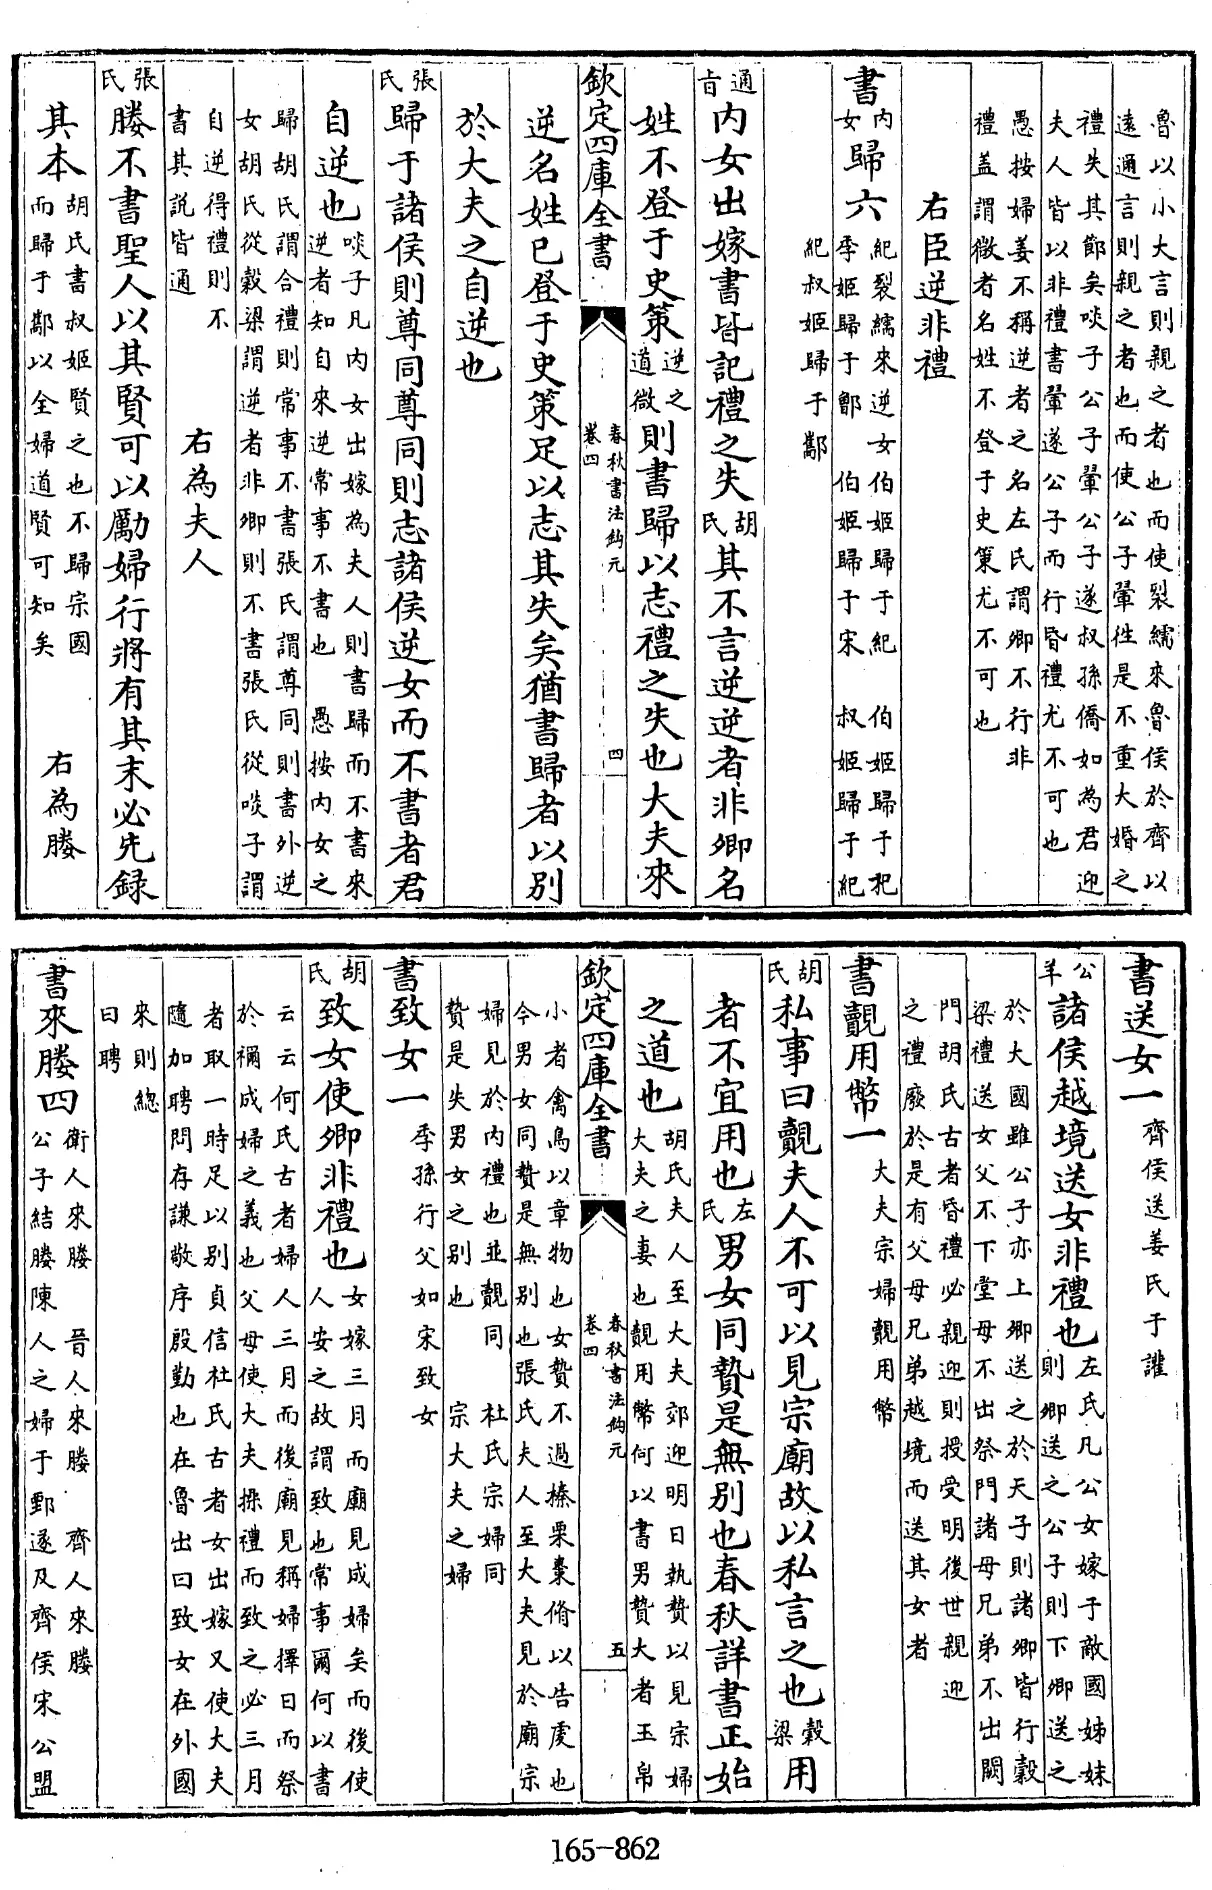 魯以小大言則親之者也而使裂繻來魯侯於齊以
遠邇言則親之者也而使公子翬往是不重大婚之
禮失其節矣啖子公子翬公子遂叔孫僑如為君迎
夫人皆以非禮書翬遂公子而行昏禮尤不可也
愚按婦姜不稱逆者之名左氏謂卿不行非
禮蓋謂微者名姓不登于史策尤不可也
右臣逆非禮
書內女歸六
紀裂繻來逆女伯姬歸于紀 伯姬歸于杞
季姬歸于鄫 伯姬歸于宋 叔姬歸于紀
紀叔姬歸于酅
通旨內女出嫁書皆記禮之失胡氏其不言逆逆者非卿名
姓不登于史策逆之道微則書歸以志禮之失也大夫來
欽定四庫全書 春秋書法鉤元 卷四 四
逆名姓已登于史策足以志其失矣猶書歸者以別
於大夫之自逆也
張氏歸于諸侯則尊同尊同則志諸侯逆女而不書者君
自逆也啖子凡內女出嫁為夫人則書歸而不書來
逆者知自來逆常事不書也 愚按內女之
歸胡氏謂合禮則常事不書張氏謂尊同則書外逆
女胡氏從穀梁謂逆者非卿則不書張氏從啖子謂
自逆得禮則不
書其說皆通
右為夫人
張氏媵不書聖人以其賢可以勵婦行將有其末必先録
其本胡氏書叔姬賢之也不歸宗國
而歸于酅以全婦道賢可知矣
右為媵
書送女一齊侯送姜氏于讙
公羊諸侯越境送女非禮也左氏凡公女嫁于敵國姊妹
則卿送之公子則下卿送之
於大國雖公子亦上卿送之於天子則諸卿皆行穀
梁禮送女父不下堂母不出祭門諸母兄弟不出闕
門胡氏古者昏禮必親迎則授受明後世親迎
之禮廢於是有父母兄弟越境而送其女者
書覿用幣一大夫宗婦覿用幣
胡氏私事曰覿夫人不可以見宗廟故以私言之也穀梁用
者不宜用也左氏男女同贄是無別也春秋詳書正始
之道也胡氏夫人至大夫郊迎明日執贄以見宗婦
大夫之妻也覿用幣何以書男贄大者玉帛
欽定四庫全書 春秋書法鉤元 卷四 五
小者禽鳥以章物也女贄不過榛栗棗脩以告虔也
今男女同贄是無別也張氏夫人至大夫見於廟宗
婦見於內禮也並覿同 杜氏宗婦同
贄是失男女之別也 宗大夫之婦
書致女一季孫行父如宋致女
胡氏致女使卿非禮也女嫁三月而廟見成婦矣而後使
人安之故謂致也常事爾何以書
云云何氏古者婦人三月而後廟見稱婦擇日而祭
於禰成婦之義也父母使大夫操禮而致之必三月
者取一時足以別貞信杜氏古者女出嫁又使大夫
隨加聘問存謙敬序殷勤也在魯出曰致女在外國
來則總
曰聘
書來媵四衛人來媵 晉人來媵 齊人來媵
公子結媵陳人之婦于鄄遂及齊侯宋公盟
165-862